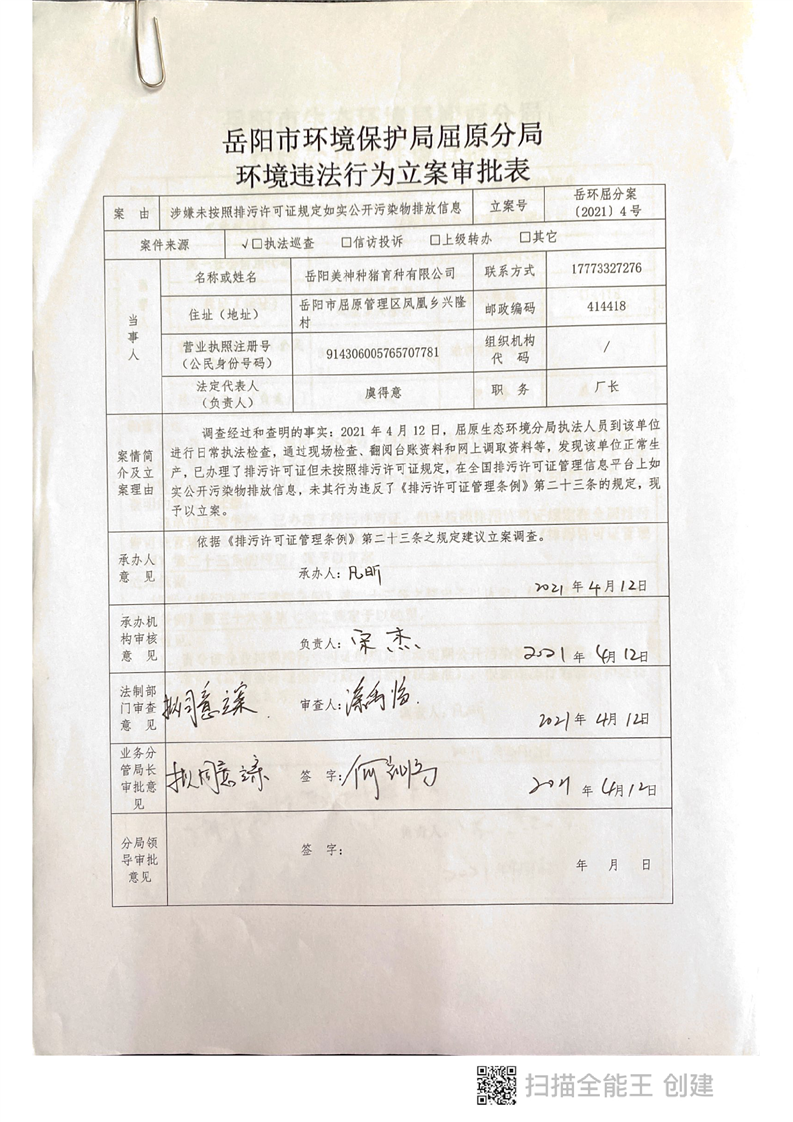 岳阳市环境保护局屈原分局
环境违法行为立案审批表
案 由 涉嫌未按照排污许可证规定如实公开污染物排放信息 立案号 岳环屈分案
〔2021〕4号
案件来源 √□执法巡查 □信访投诉 □上级转办 □其它
当事人
名称或姓名 岳阳美神种猪育种有限公司 联系方式 17773327276
住址（地址） 岳阳市屈原管理区凤凰乡兴隆
村
邮政编码 414418
营业执照注册号
（公民身份号码）
914306005765707781
组织机构
代 码
/
法定代表人
（负责人）
虞得意 职 务 厂长
案情简
介及立
案理由
调查经过和查明的事实：2021年4月12日，屈原生态环境分局执法人员到该单位
进行日常执法检查，通过现场检查、翻阅台账资料和网上调取资料等，发现该单位正常生
产，已办理了排污许可证但未按照排污许可证规定，在全国排污许可证管理信息平台上如
实公开污染物排放信息，未其行为违反了《排污许可证管理条例》第二十三条的规定，现
予以立案。
承办人
意 见
依据《排污许可证管理条例》第二十三条之规定建议立案调查。
承办人：凡昕
2021年4月12日
承办机
构审核
意 见
负责人：宋杰
2021年4月12日
法制部
门审查
意 见
拟同意立案.
审查人：
2021年4月12日
业务分
管局长
审批意
见
拟同意立案
签 字：何
2021年4月12日
分局领
导审批
意见
签 字：
年 月 日
扫描全能王 创建